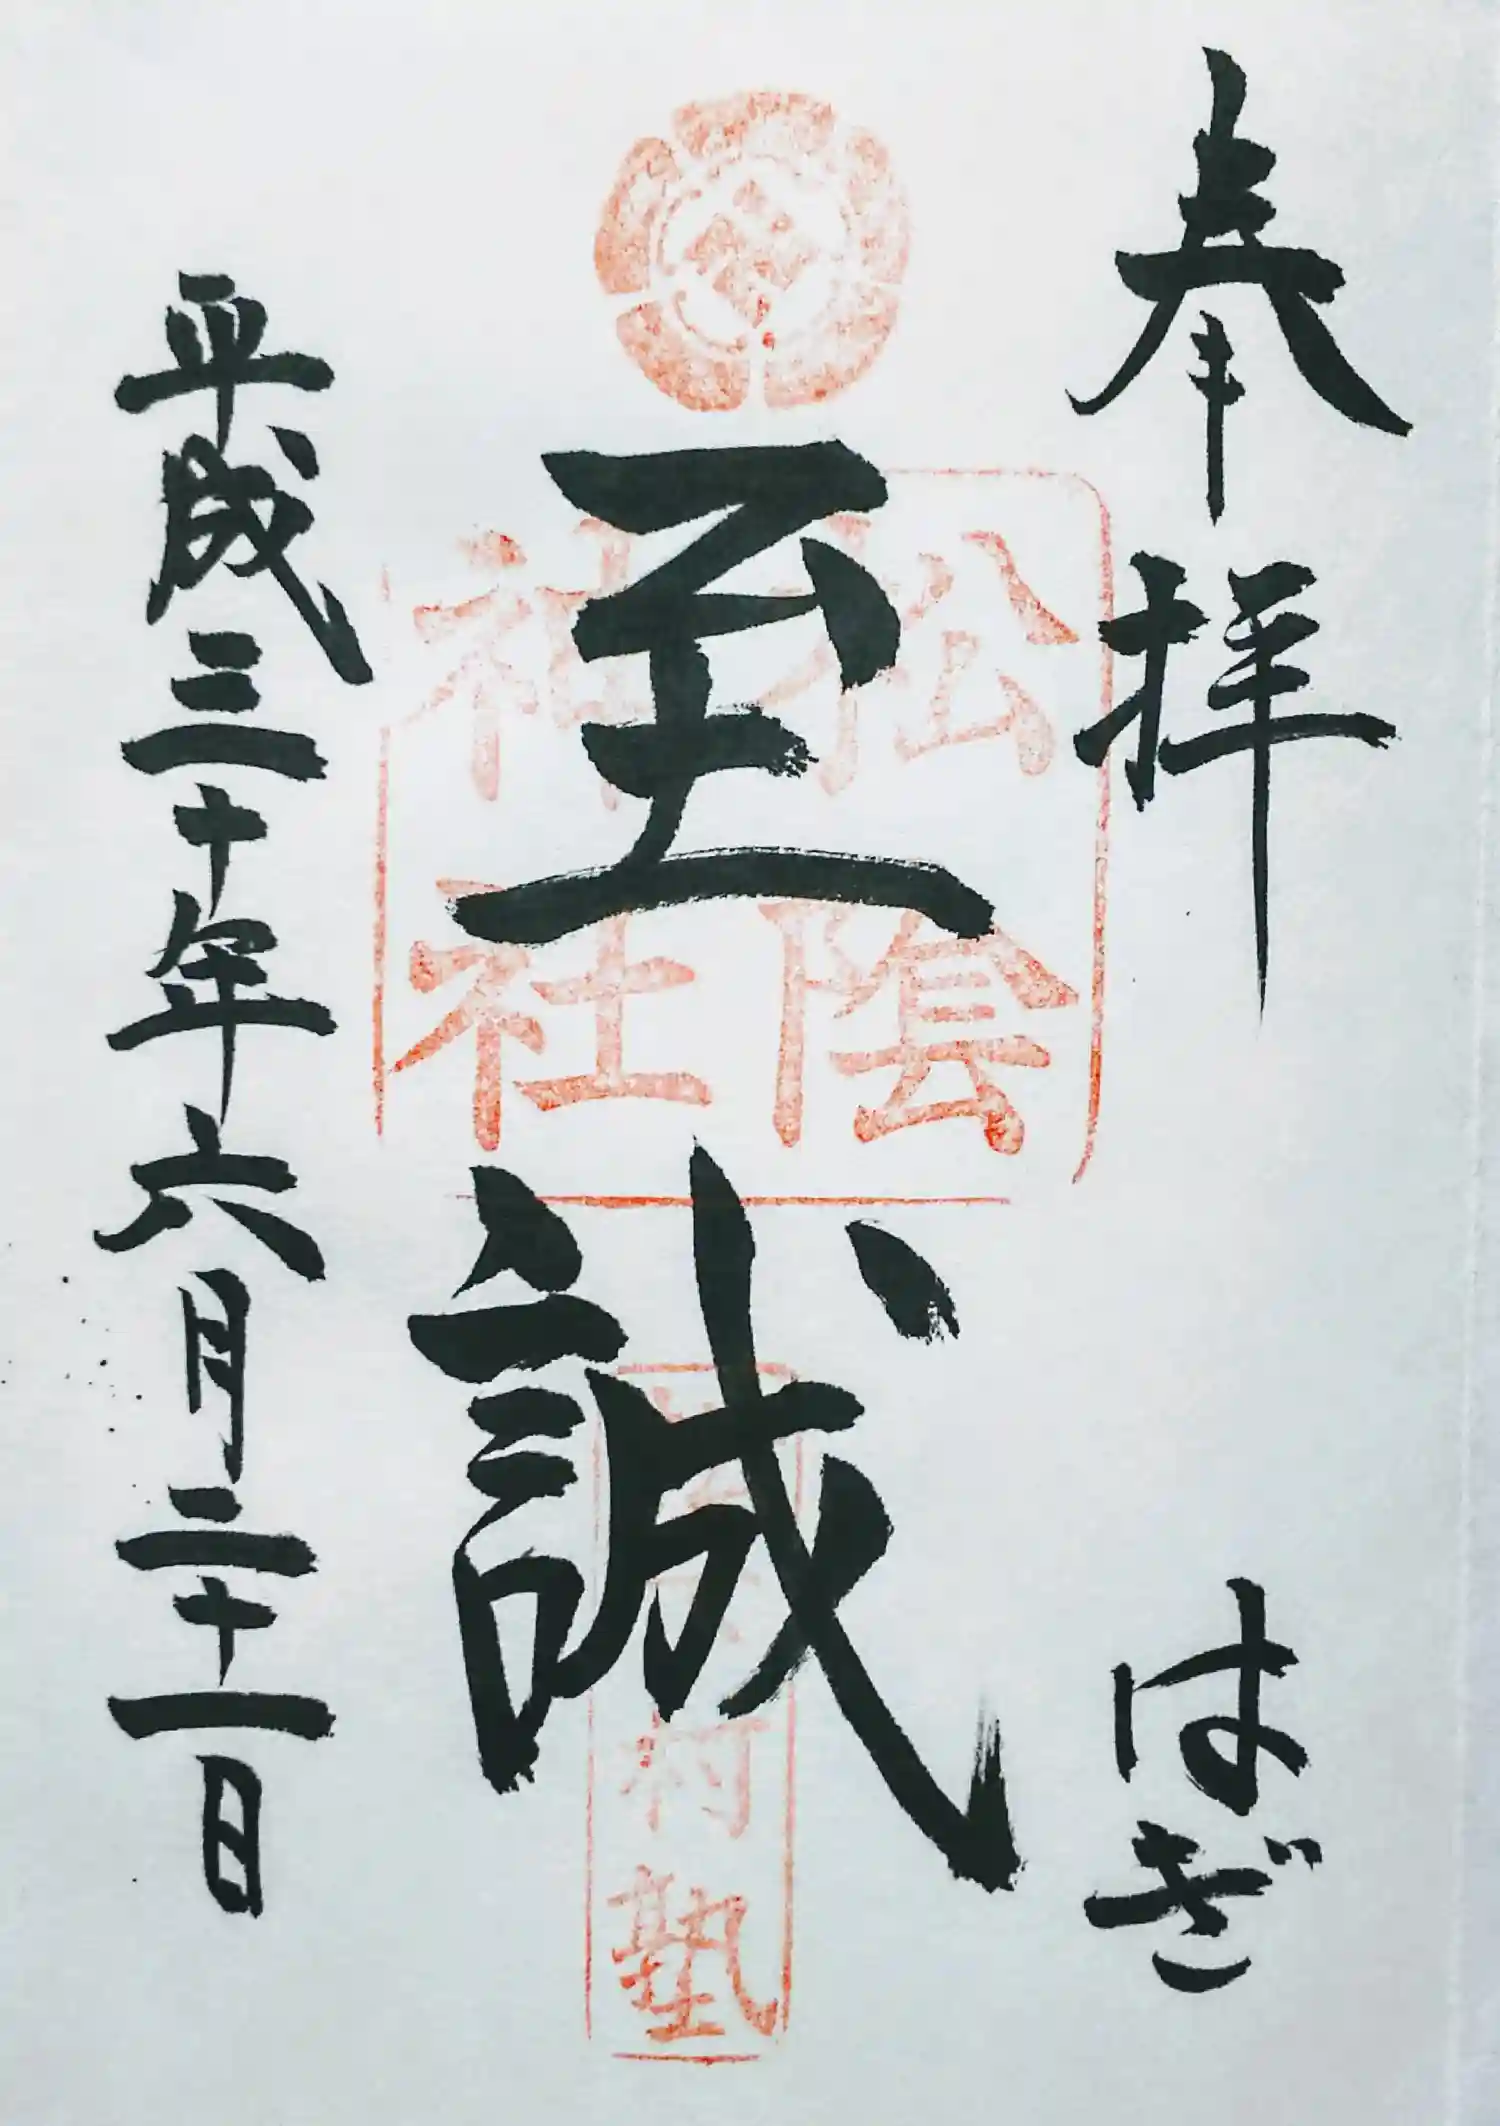 奉拝 はぎ
至誠
松陰
神社
村塾
平成三十年六月二十一日